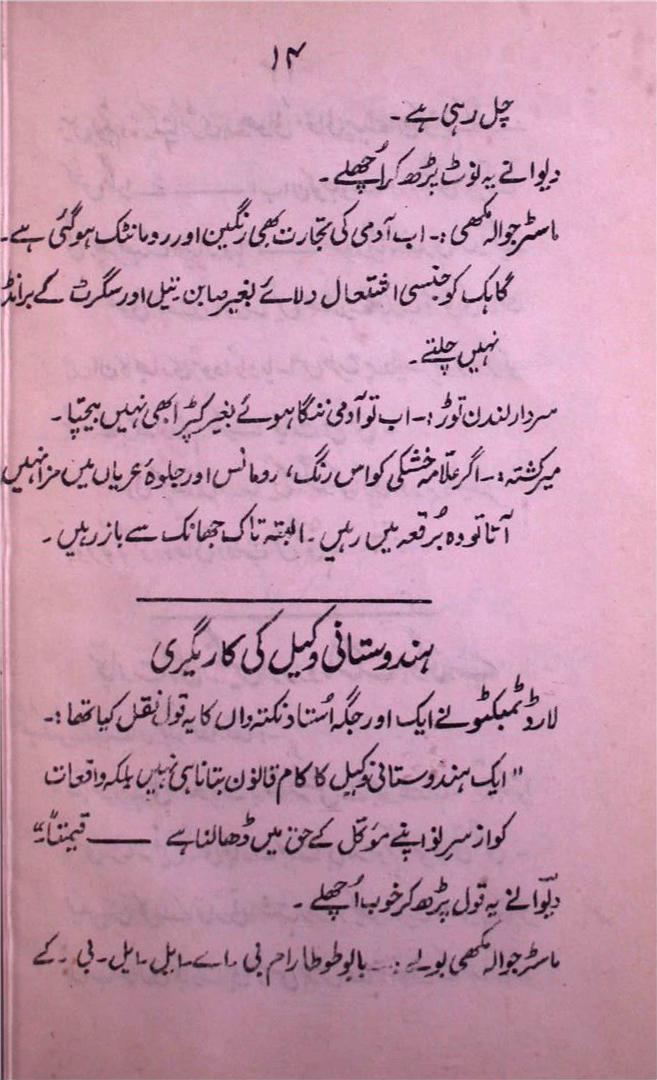 ۱۴
چل رہی ہے۔
دیوانے یہ نوٹ پڑھ کر اُچھلے۔
ماسٹر جوالہ مکھی :۔ اب آدمی کی تجارت بھی رنگین اور رومانٹک ہو گئی ہے۔
گاہک کو جنسی اشتعال دلائے بغیر صابن تیل اور سگرٹ کے برانڈ
نہیں چلتے۔
سردار لندن توڑ :۔ اب تو آدمی ننگا ہوئے بغیر کپڑا بھی نہیں بیچتا۔
میر کشتہ :۔ اگر علامہ خشکی کو اس رنگ، رومانس اور جلوۂ عریاں میں مزا نہیں
آتا تو وہ بُرقعہ میں رہیں۔ البتہ تاک جھانک سے باز رہیں۔
ہندوستانی وکیل کی کاریگری
لارڈ ٹمبکٹو نے ایک اور جگہ اُستاد نکتہ داں کا یہ قول نقل کیا تھا :۔
"ایک ہندوستانی وکیل کا کام قانون بتانا ہی نہیں بلکہ واقعات
کو از سرِ نو اپنے موکل کے حق میں ڈھالنا ہے —— قیمتاً۔"
دیوانے یہ قول پڑھ کر خوب اُچھلے۔
ماسٹر جوالہ مکھی بولے :۔ بابو طوطا رام بی۔ اے۔ ایل۔ ایل۔ بی۔ کے